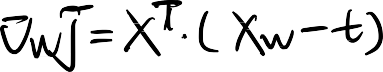 ∇_w J = X^T · (Xw − t)